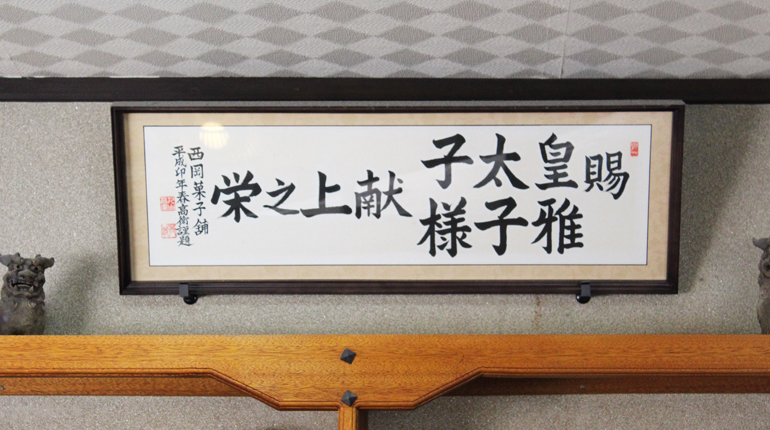 賜
皇太子
雅子様
献上之栄
西岡菓子舗
平成卯年春高衛謹題